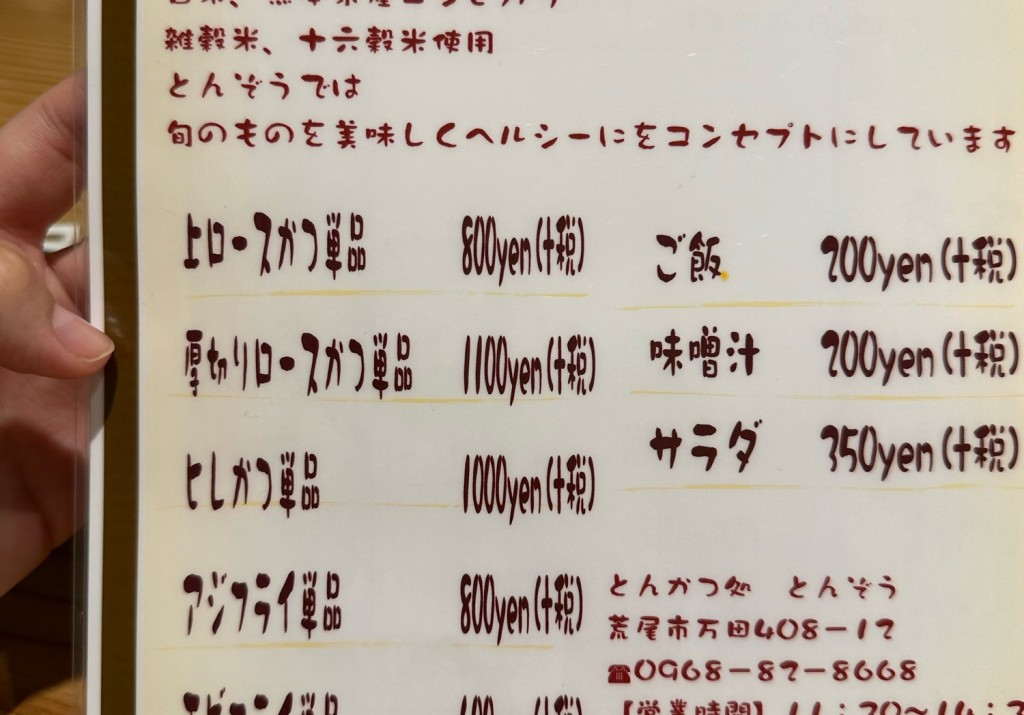 雑穀米、十六穀米使用
とんぞうでは
旬のものを美味しくヘルシーにをコンセプトにしています
上ロースかつ単品 800yen(+税)
厚切りロースかつ単品 1100yen(+税)
ヒレかつ単品 1000yen(+税)
アジフライ単品 800yen(+税)
ご飯 200yen(+税)
味噌汁 200yen(+税)
サラダ 350yen(+税)
とんかつ処 とんぞう
荒尾市万田408-12
☎0968-82-8668
【営業時間】